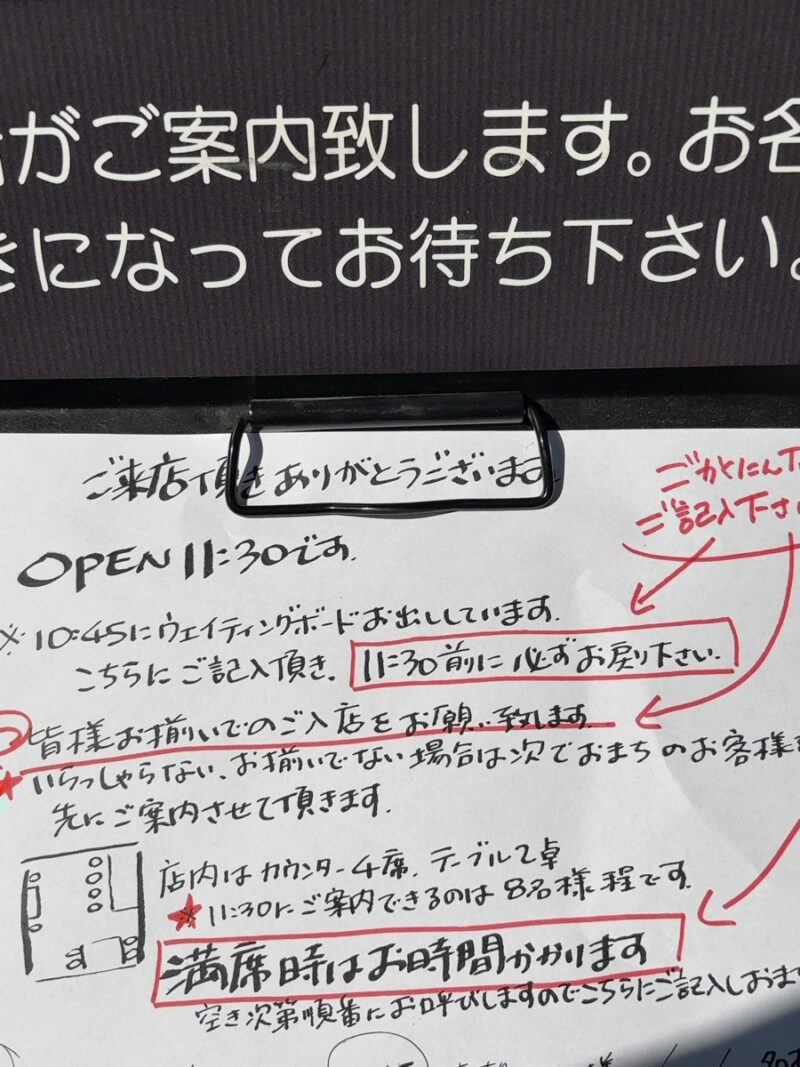 がご案内致します。お名
きになってお待ち下さい。
ご来店頂きありがとうございます
ごかくにん下
ご記入下さい
OPEN 11:30です.
※10:45にウェイティングボードお出ししています.
こちらにご記入頂き. 11:30前に必ずお戻り下さい.
皆様お揃いでのご入店をお願い致します.
★いらっしゃらない、お揃いでない場合は次でおまちのお客様を
先にご案内させて頂きます.
店内はカウンター4席. テーブル2卓
※11:30にご案内できるのは8名様程です.
満席時はお時間かかります
空き次第順番にお呼びしますのでこちらにご記入しおまち